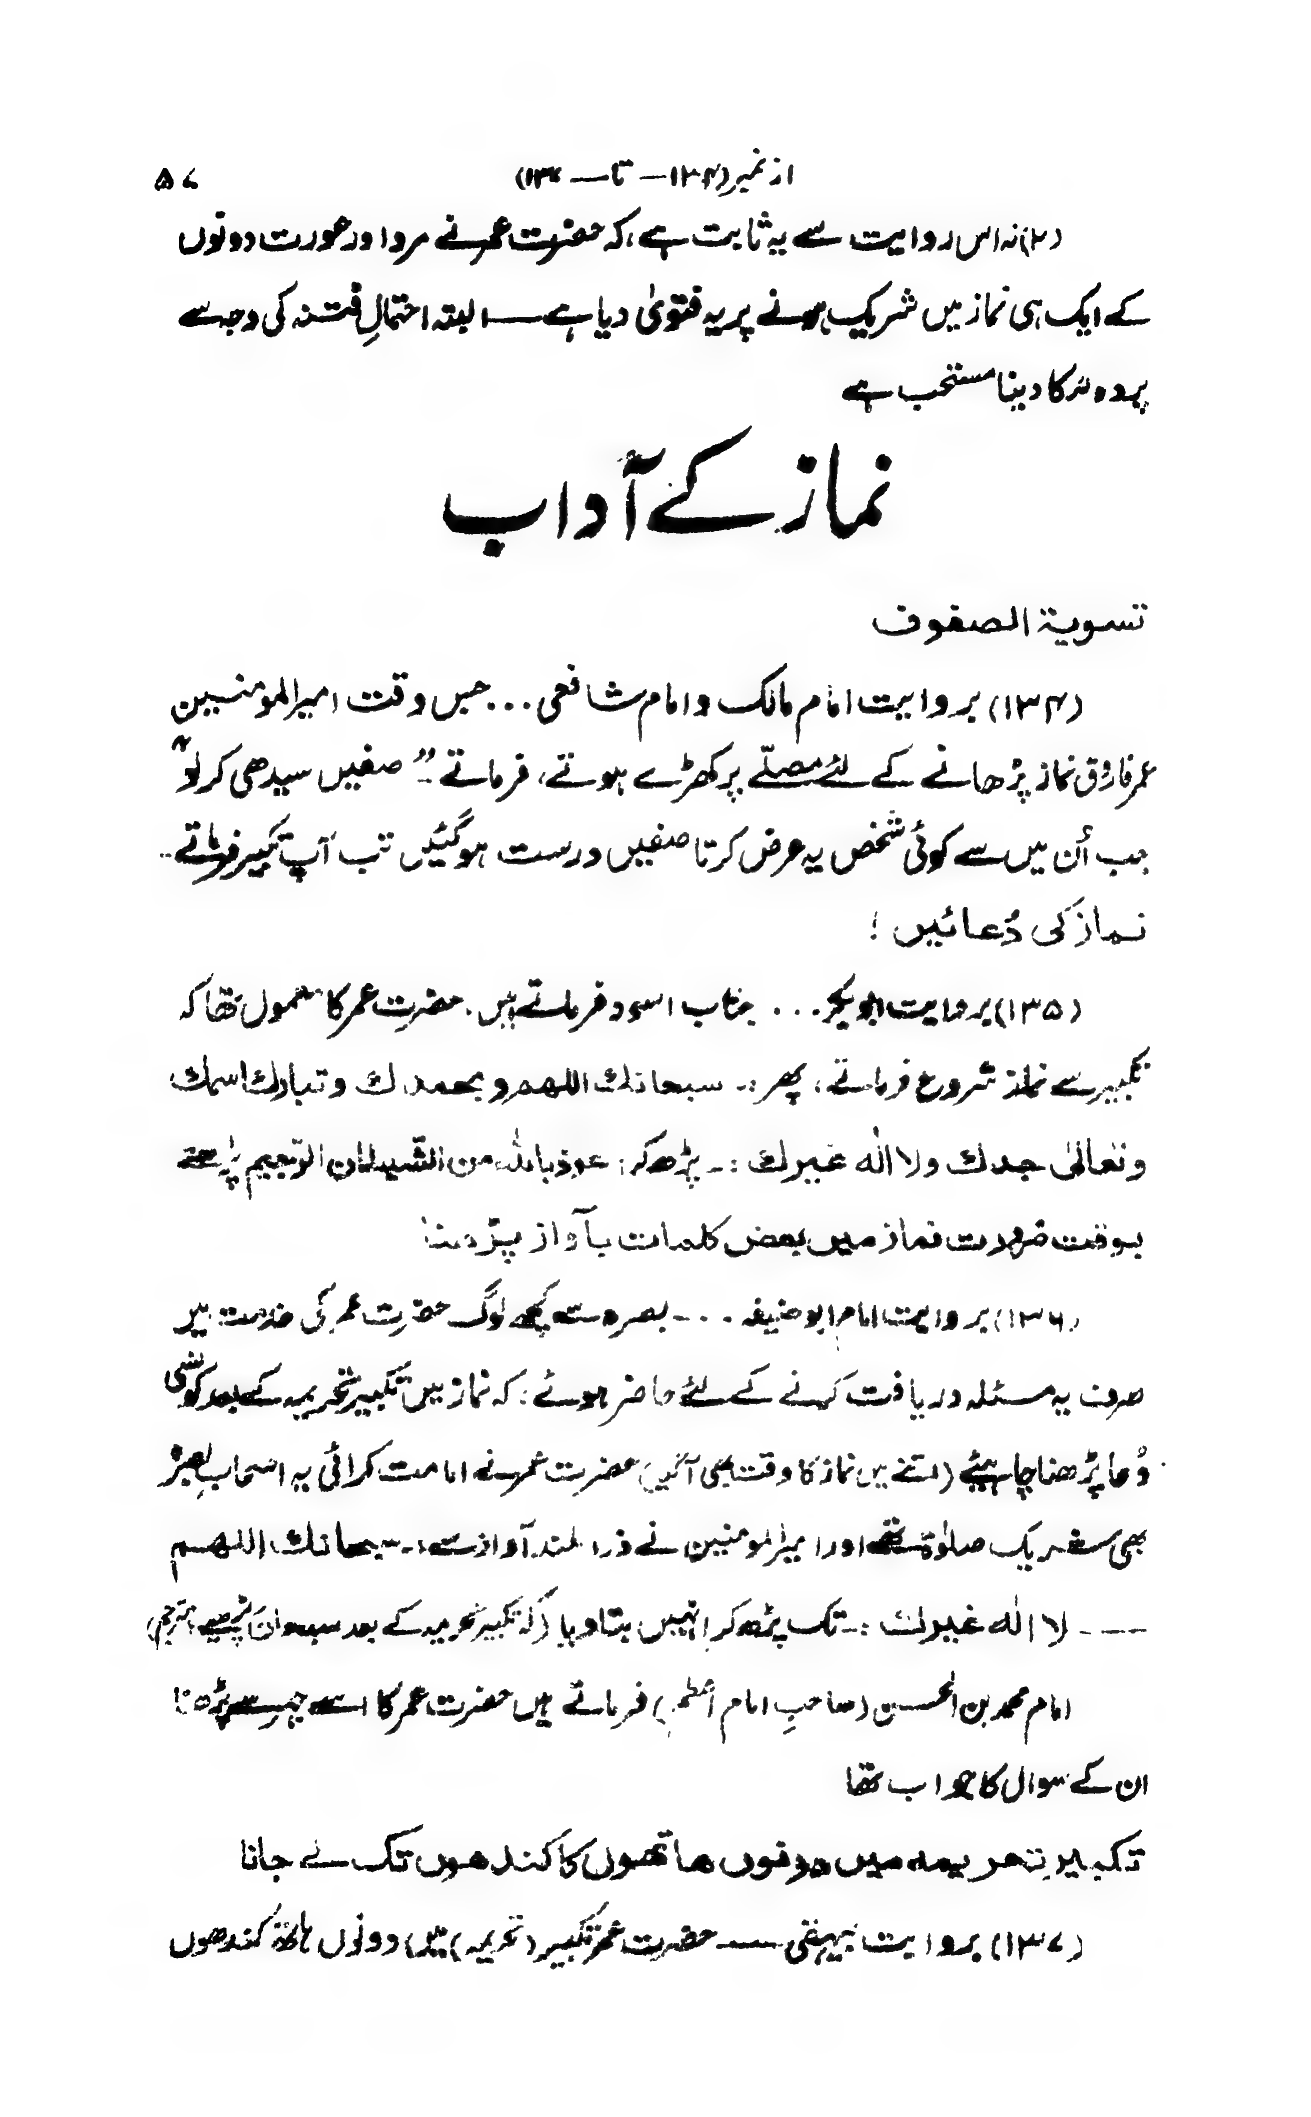 از نمبر (۱۳۴ — تا — ۱۳۷) ۵۷
(۲) نہ اس روایت سے یہ ثابت ہے، کہ حضرت عمر نے مرد اور عورت دونوں
کے ایک ہی نماز میں شریک ہونے پر یہ فتویٰ دیا ہے — البتہ احتمالِ فتنہ کی وجہ سے
پردہ کا دینا مستحب ہے
نماز کے آداب
تسویۃ الصفوف
(۱۳۴) بروایت امام مالک و امام شافعی ... جس وقت امیر المومنین
عمر فاروق نماز پڑھانے کے لئے مصلّے پر کھڑے ہوتے، فرماتے :۔ "صفیں سیدھی کر لو"
جب اُن میں سے کوئی شخص یہ عرض کرتا صفیں درست ہو گئیں تب آپ تکبیر فرماتے ..
نماز کی دُعائیں !
(۱۳۵) بروایت ابوبکر ... جناب اسود فرماتے ہیں۔ حضرت عمر کا معمول تھا کہ
تکبیر سے نماز شروع فرماتے، پھر :۔ سبحانک اللھم وبحمدک وتبارک اسمک
وتعالیٰ جدک ولا الٰہ غیرک :۔ پڑھ کر : عوذ باللہ من الشیطان الرجیم پڑھتے
بوقت ضرورت نماز میں بعض کلمات بآواز پڑھنا
(۱۳۶) بروایت امام ابو حنیفہ ... بصرہ سے کچھ لوگ حضرت عمر کی خدمت میں
صرف یہ مسئلہ دریافت کرنے کے لئے حاضر ہوئے : کہ نماز میں تکبیر تحریمہ کے بعد کونسی
دُعا پڑھنا چاہیئے (اتنے میں نماز کا وقت بھی آ گیا) حضرت عمر نے امامت کرائی یہ اصحابِ بصرہ
بھی شریک صلوٰۃ تھے اور امیر المومنین نے ذرا بلند آواز سے :۔ سبحانک اللھم
---- لا الٰہ غیرک :۔ تک پڑھ کر انہیں بتا دیا (کہ تکبیر تحریمہ کے بعد سبحانک پڑھیے، مترجم)
امام محمد بن الحسن (صاحبِ امام اعظم) فرماتے ہیں حضرت عمر کا اسے جہر سے پڑھنا
ان کے سوال کا جواب تھا
تکبیر تحریمہ میں دونوں ہاتھوں کا کندھوں تک لے جانا
(۱۳۷) بروایت بیہقی — حضرت عمر تکبیر (تحریمہ) میں دونوں ہاتھ کندھوں